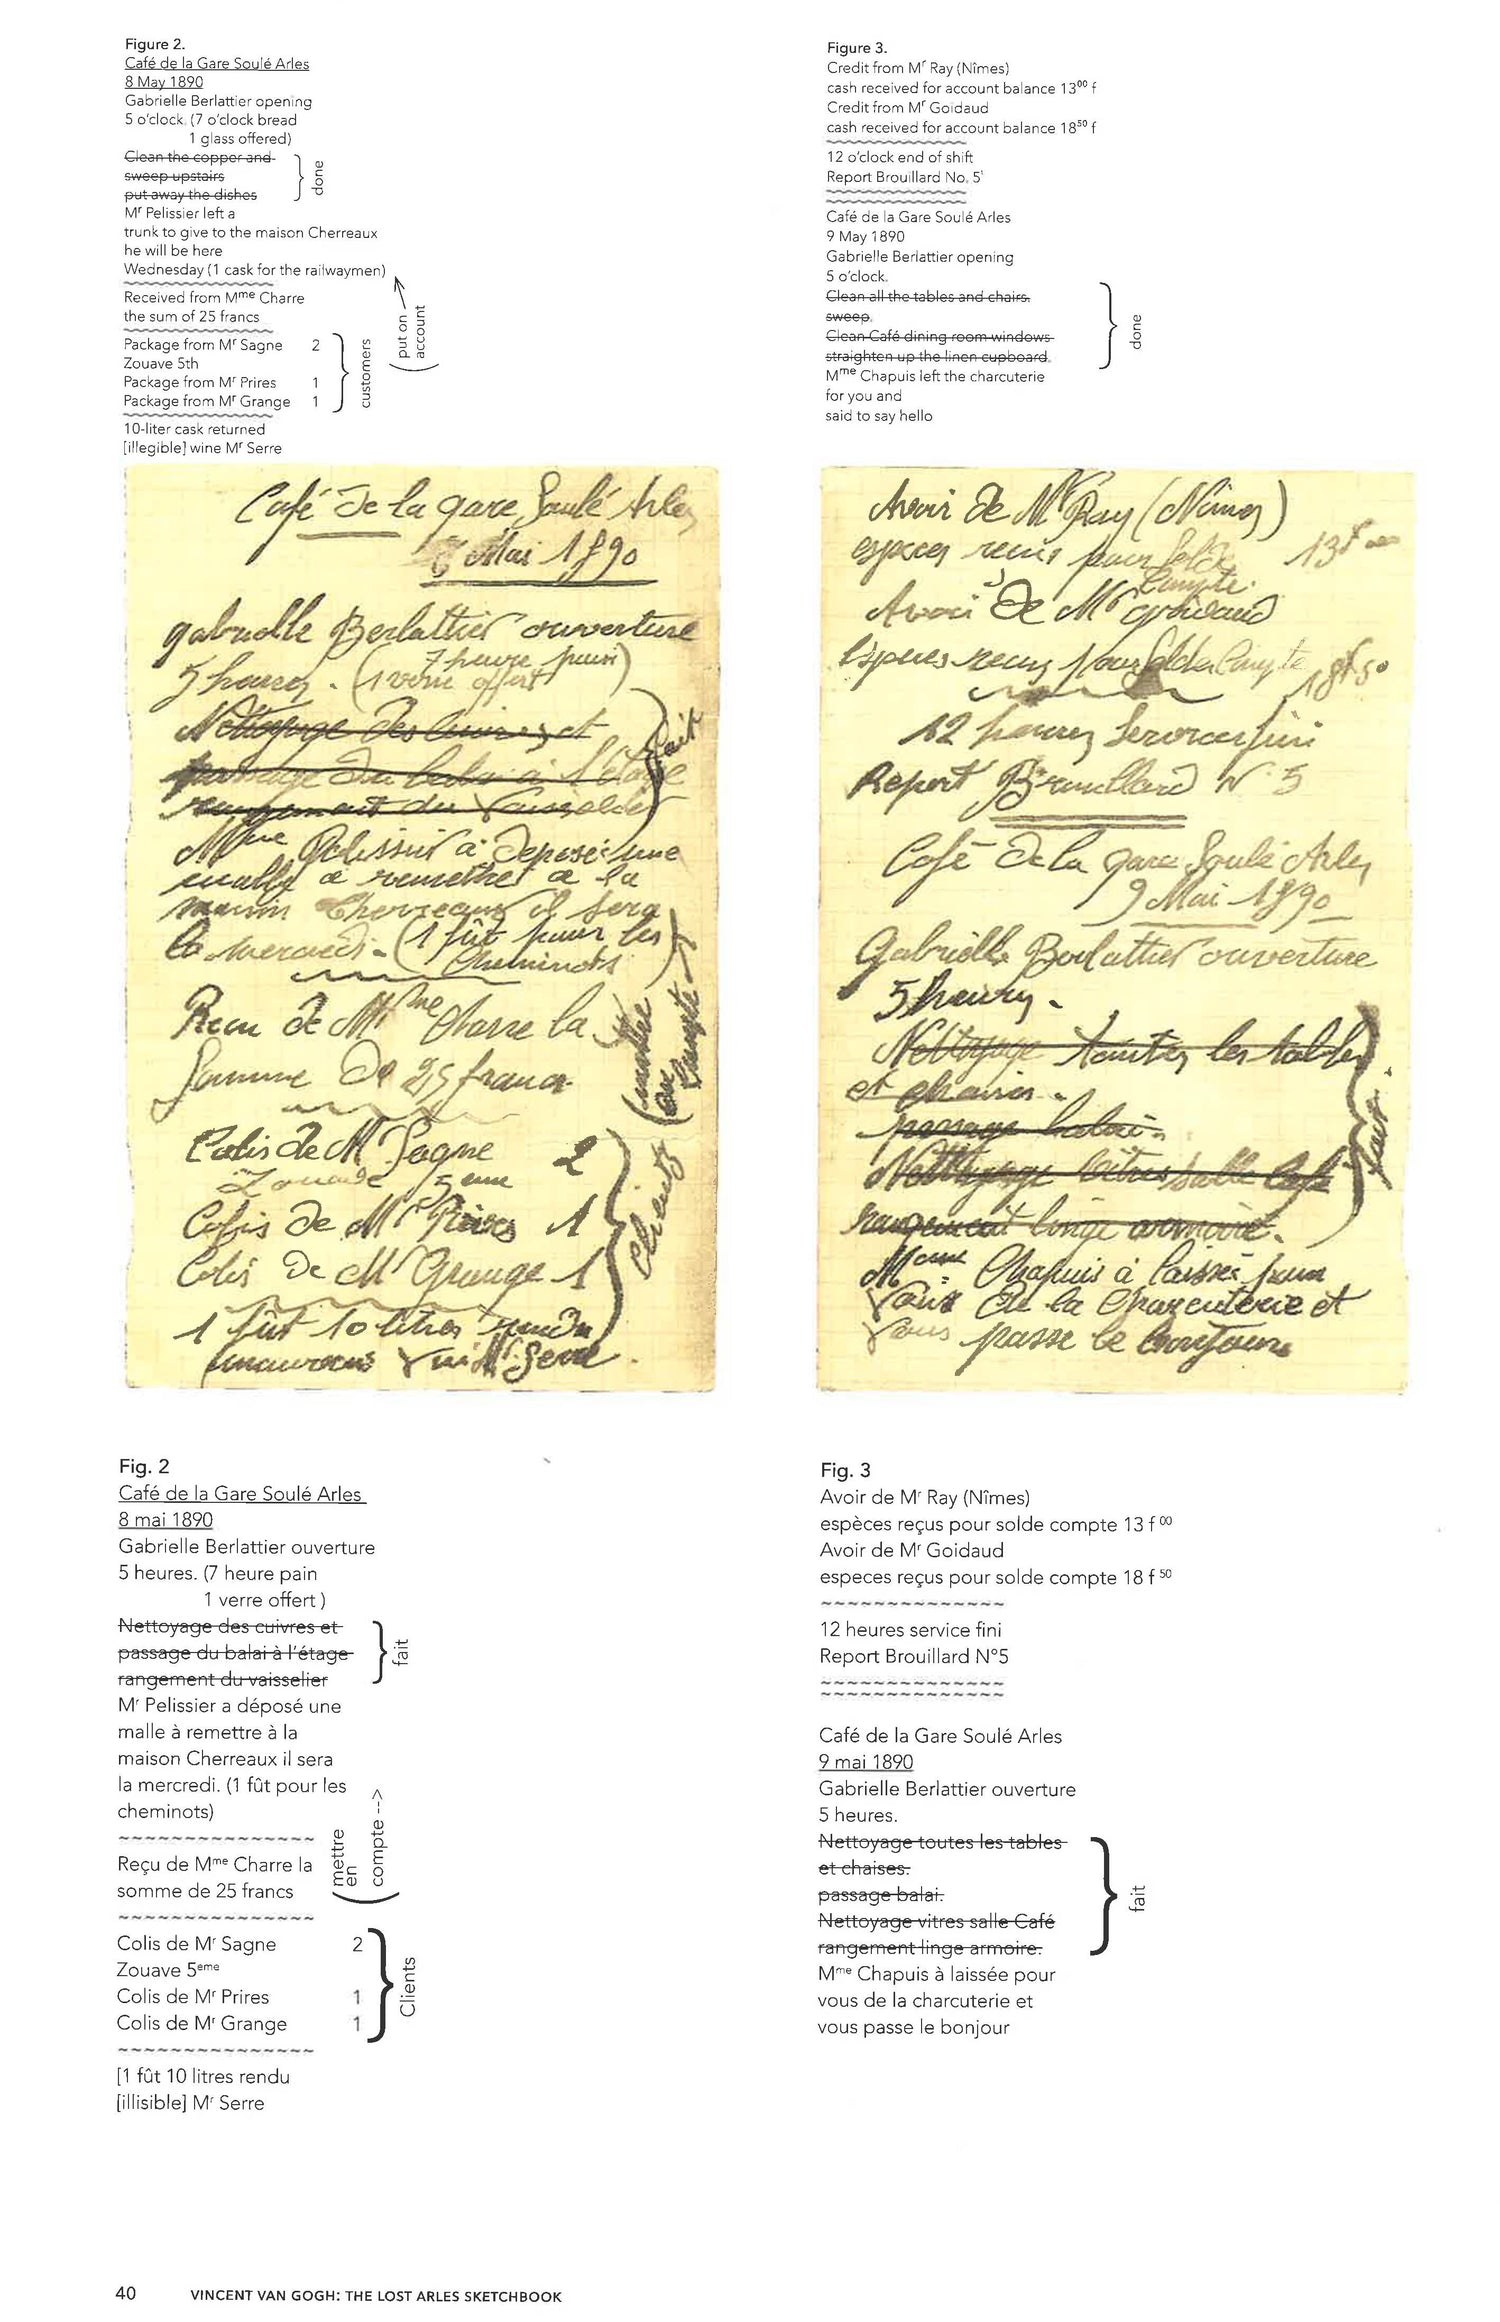 Figure 2.
Café de la Gare Soulé Arles
8 May 1890
Gabrielle Berlattier opening
5 o'clock. (7 o'clock bread
1 glass offered)
Clean the copper and
sweep upstairs
put away the dishes
done
Mr Pelissier left a
trunk to give to the maison Cherreaux
he will be here
Wednesday (1 cask for the railwaymen)
put on
account
Received from Mme Charre
the sum of 25 francs
Package from Mr Sagne 2
Zouave 5th
Package from Mr Prires 1
Package from Mr Grange 1
customers
10-liter cask returned
[illegible] wine Mr Serre
Figure 3.
Credit from Mr Ray (Nîmes)
cash received for account balance 13⁰⁰ f
Credit from Mr Goidaud
cash received for account balance 18⁵⁰ f
12 o'clock end of shift
Report Brouillard No. 5'
Café de la Gare Soulé Arles
9 May 1890
Gabrielle Berlattier opening
5 o'clock.
Clean all the tables and chairs.
sweep.
Clean Café dining room windows
straighten up the linen cupboard.
done
Mme Chapuis left the charcuterie
for you and
said to say hello
Café de la gare Soulé Arles
8 Mai 1890
gabrielle Berlattier ouverture
5 heures. (7 heure pain
1 verre offert)
Nettoyage des cuivres et
passage du balai à l'étage
rangement du Vaisselier
fait
Pelissier a déposé une
malle a remettre a la
maison Cherreaux il sera
la mercredi. (1 fût pour les
cheminots)
mettre
compte
Recu de Mme Charre la
Somme De 25 francs
Colis de Mr Sagne 2
Zouave 5eme
Colis de Mr Prires 1
Colis De Mr Grange 1
Clients
1 fût 10 litres rendu
vin Mr Serre.
Avoir De Mr Ray (Nimes)
especes recus pour Solde 13f 00
Compte.
Avoir De Mr goidaud
Especes recus pour Solde Compte 18f 50
12 heures Service fini
Report Brouillard N° 5
Café de la gare Soulé Arles
9 Mai 1890
Gabrielle Berlattier ouverture
5 heures.
Nettoyage toutes les tables
et chaises.
passage balai.
Nettoyage vitres salle Café
rangement linge armoire.
fait
Chapuis à laissée pour
Vous de la Charcuterie et
Vous passe le bonjour
Fig. 2
Café de la Gare Soulé Arles
8 mai 1890
Gabrielle Berlattier ouverture
5 heures. (7 heure pain
1 verre offert )
Nettoyage des cuivres et
passage du balai à l'étage
rangement du vaisselier
fait
Mr Pelissier a déposé une
malle à remettre à la
maison Cherreaux il sera
la mercredi. (1 fût pour les
cheminots)
mettre
en
compte -->
Reçu de Mme Charre la
somme de 25 francs
Colis de Mr Sagne 2
Zouave 5eme
Colis de Mr Prires 1
Colis de Mr Grange 1
Clients
[1 fût 10 litres rendu
[illisible] Mr Serre
Fig. 3
Avoir de Mr Ray (Nîmes)
espèces reçus pour solde compte 13 f ⁰⁰
Avoir de Mr Goidaud
especes reçus pour solde compte 18 f ⁵⁰
12 heures service fini
Report Brouillard N°5
Café de la Gare Soulé Arles
9 mai 1890
Gabrielle Berlattier ouverture
5 heures.
Nettoyage toutes les tables
et chaises.
passage balai.
Nettoyage vitres salle Café
rangement linge armoire.
fait
Mme Chapuis à laissée pour
vous de la charcuterie et
vous passe le bonjour
40 VINCENT VAN GOGH: THE LOST ARLES SKETCHBOOK